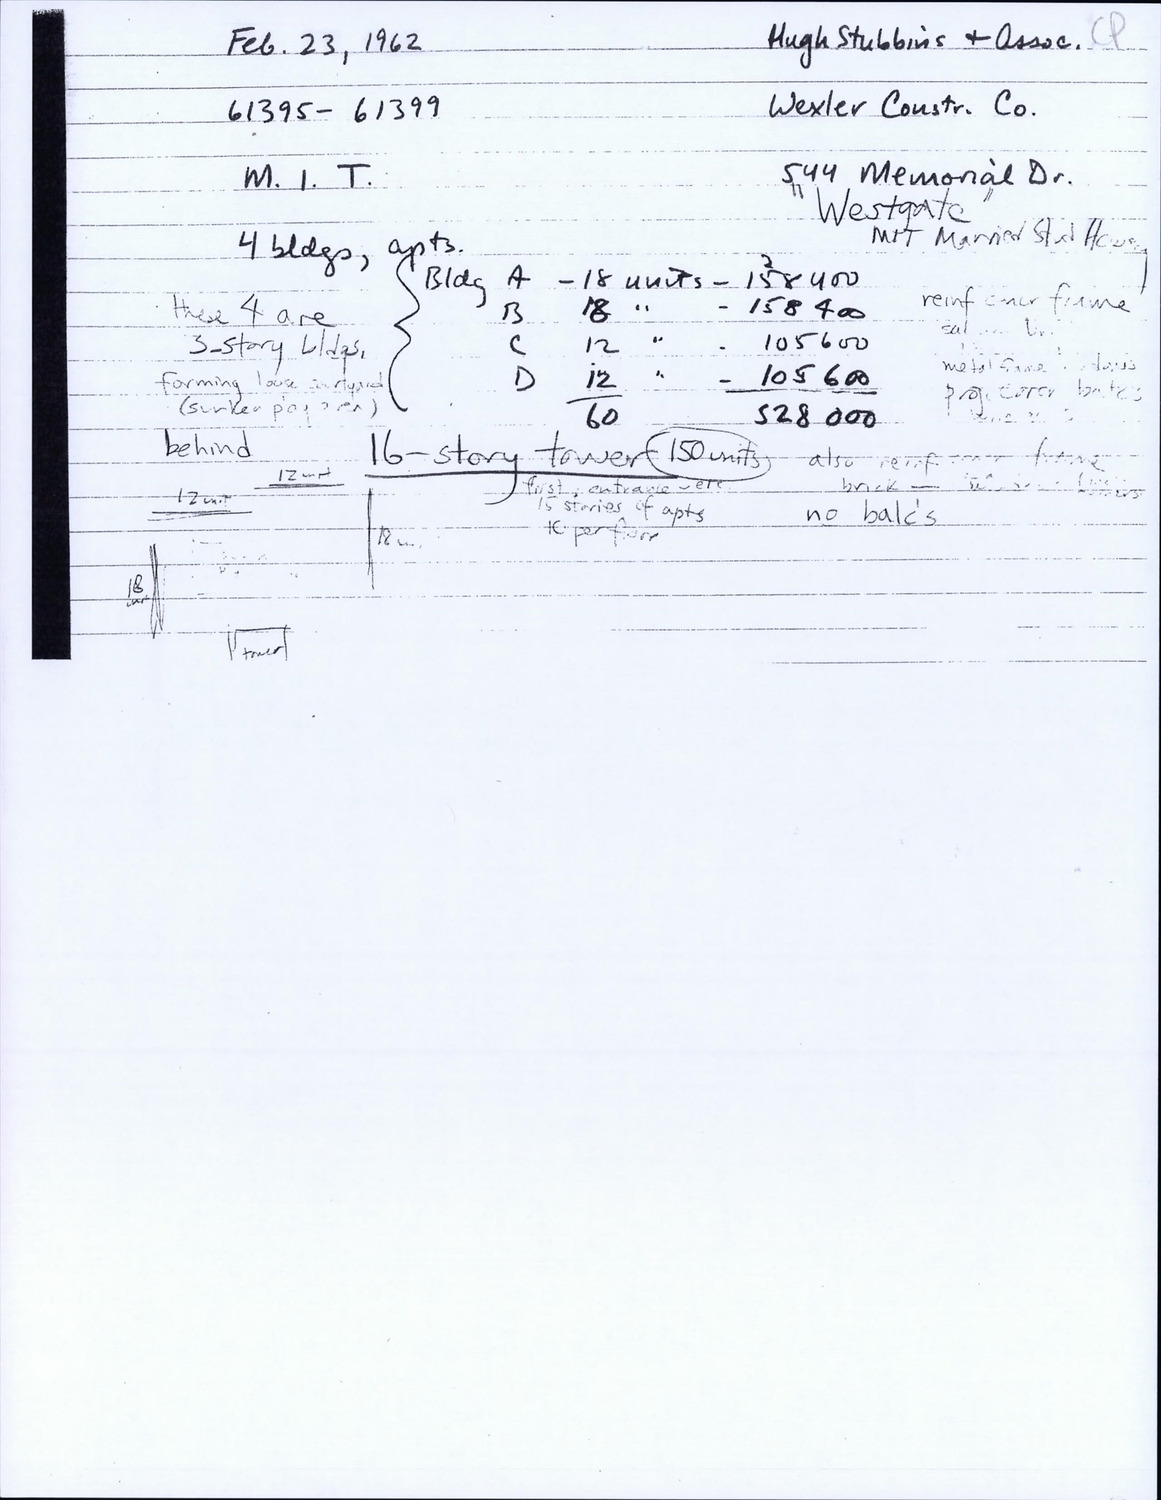 Feb. 23, 1962 Hugh Stubbins + Assoc. CP
61395- 61399 Wexler Constr. Co.
M. I. T. 544 Memorial Dr.
"Westgate"
MIT Married Stud Housing
4 bldgs, apts.
Bldg A - 18 units - 158 400
these 4 are B 18 " - 158 400 reinf concr frame
3-story bldgs, C 12 " - 105600
forming loose courtyard D 12 " - 105 600 metal frame
(sunken play area) 60 528 000
behind 16-story tower (150 units) also reinf concr frame
12 unit first, entrance brick
12 unit 15 stories of apts no balc's
per floor
18
unit
tower